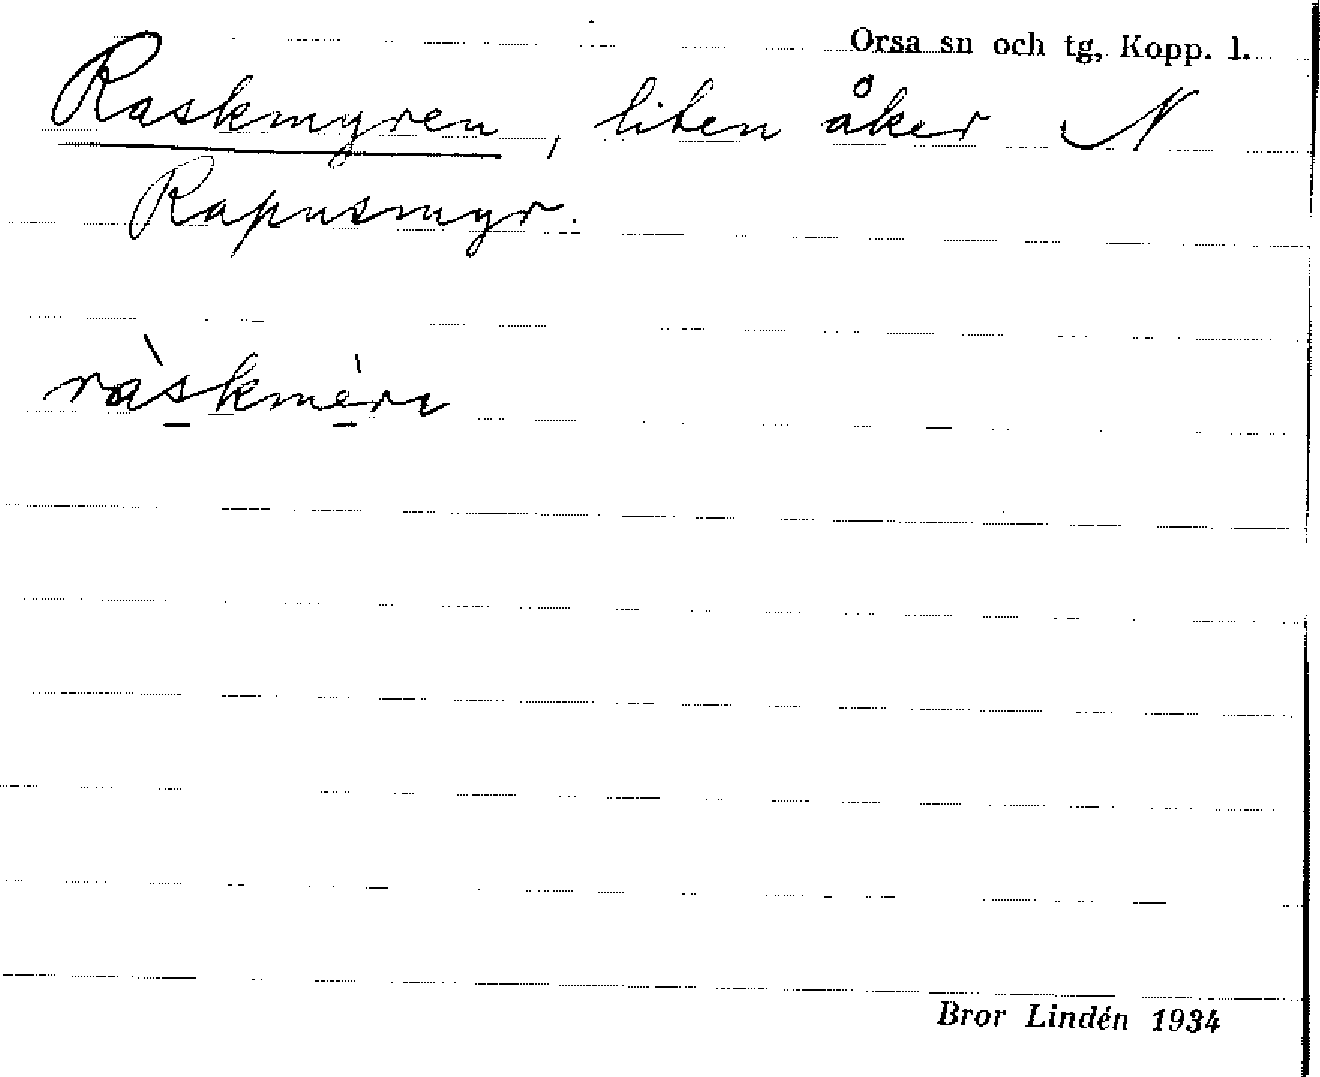 Orsa sn och tg, Kopp. l.
Raskmyren, liten åker N
Rapusmyr.
ràskmèrı
Bror Lindén 1934